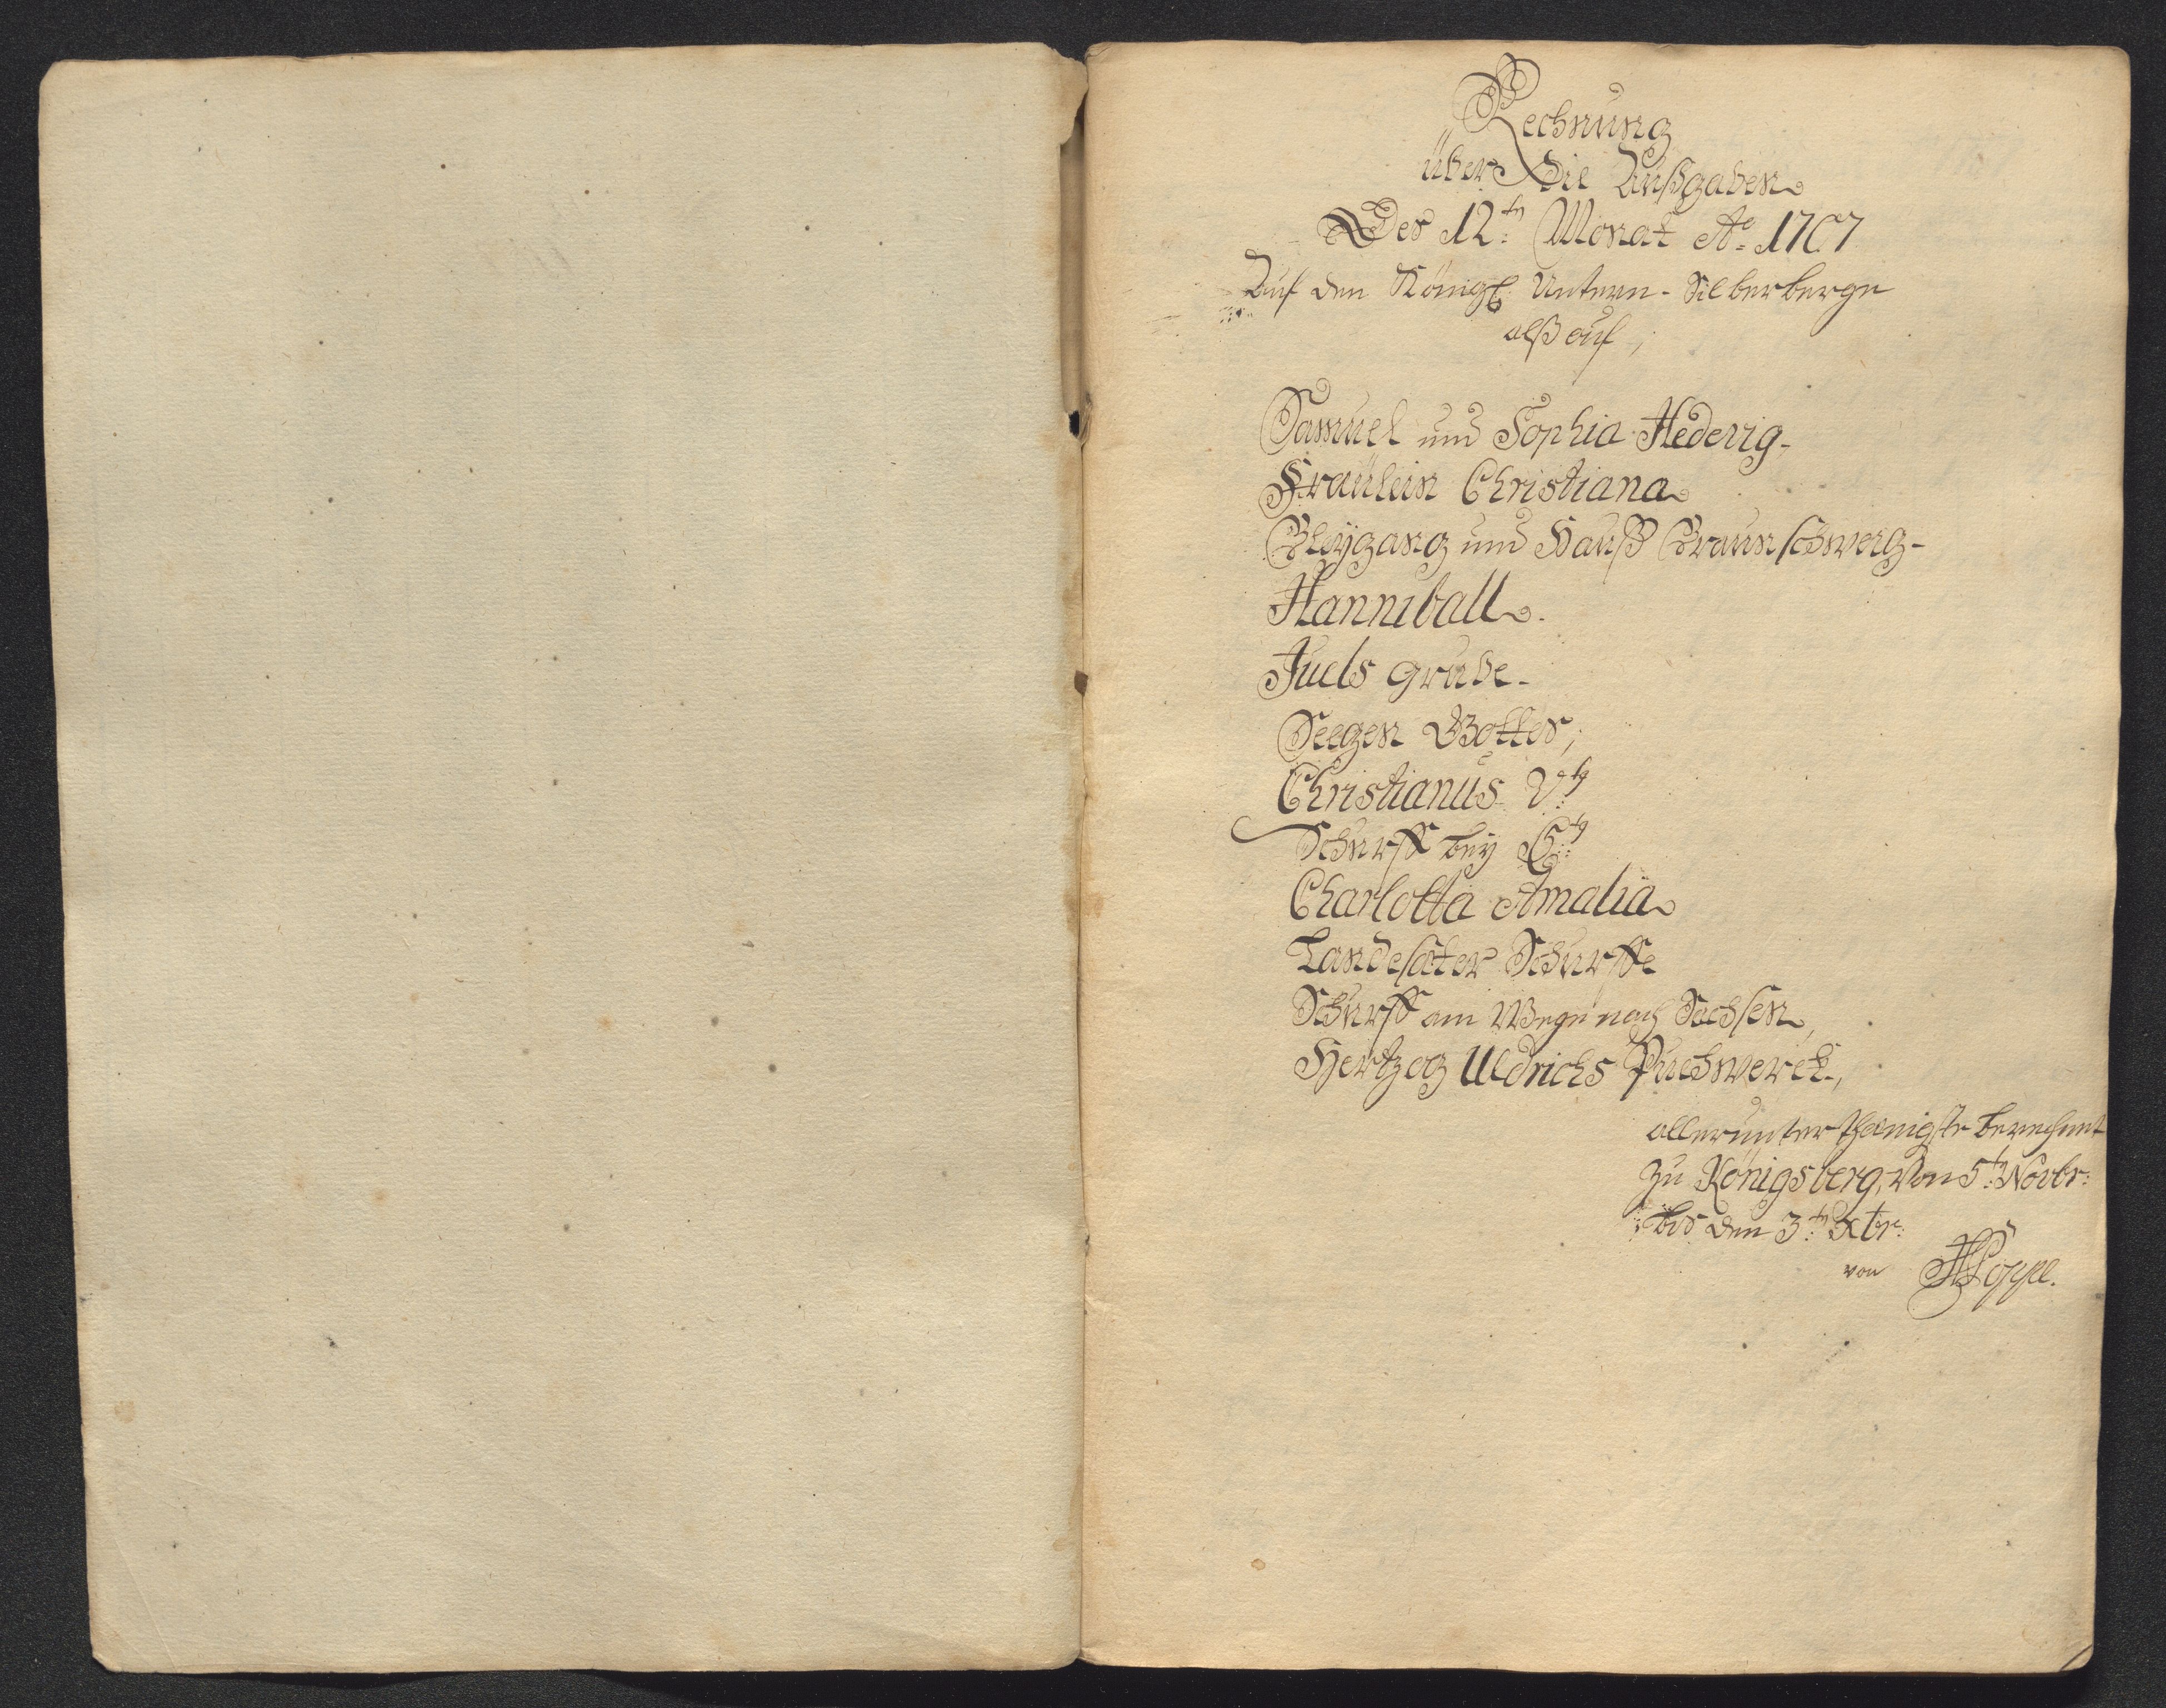 Rechnung
über Die Außgaben
Des 12.tn Monat Ao. 1707
Auf den Königl. Untern-Silberberge
alß auf,
Samuel und Sophia Hedevig-
Fraülein Christiana
Bleÿgang und Hauß Braunschweig-
Hanniball.
Juels Grube-
Seegen Gottes,
Christianus V.tg
Schurff beÿ C. 5tg
Charlotta Amalia
Landesater Schurffe
Schurff am Wege nach Sachsen,
Hertzog Uldrichs Puchwerck,
allerunterthænigste berechnet
zu Königsberg, Von 5.tn Novbr:
bis den 3.tn Xbr:
von